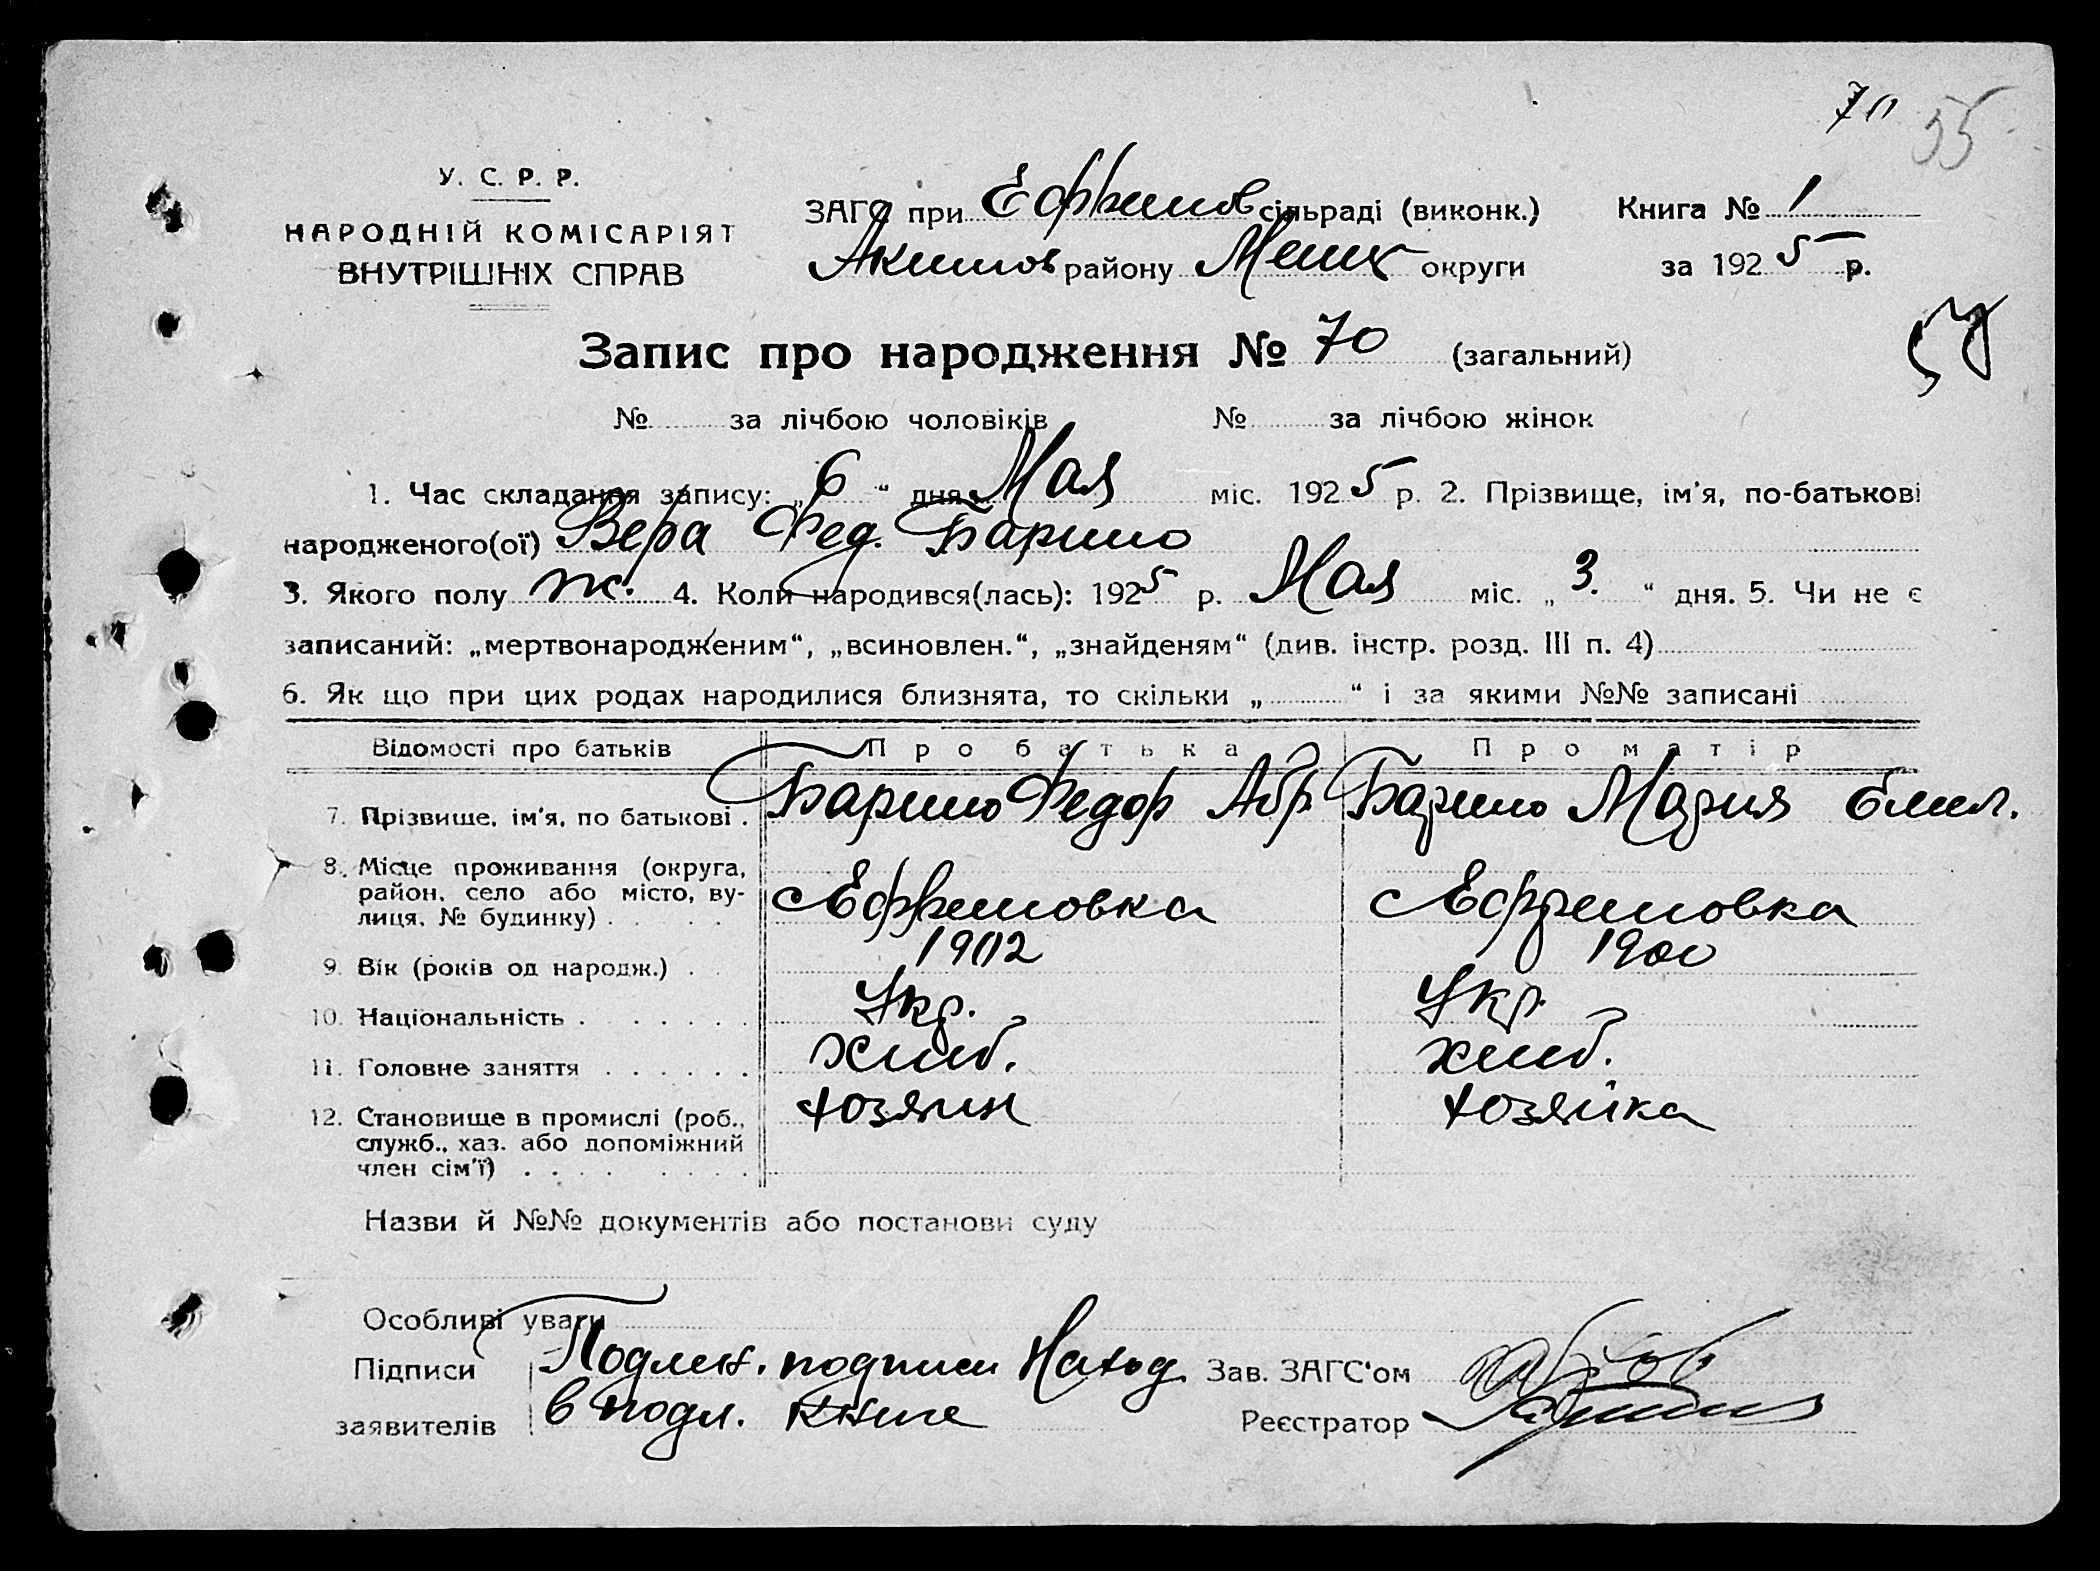 70 55
У. С. Р. Р.
НАРОДНІЙ КОМІСАРІЯТ
ВНУТРІШНІХ СПРАВ
ЗАГС при Ефремов сільраді (виконк.) Книга № 1
Акимов району Мелит округи за 1925 р.
Запис про народження № 70 (загальний)
№ за лічбою чоловіків № за лічбою жінок
1. Час складання запису: „6“ дня Мая міс. 1925 р. 2. Прізвище, ім'я, по-батькові
народженого(ої) Вера Фед. Барило
3. Якого полу ж. 4. Коли народився(лась): 1925 р. Мая міс. „3.“ дня. 5. Чи не є
записаний: „мертвонародженим“, „всиновлен.“, „знайденям“ (див. інстр. розд. III п. 4)
6. Як що при цих родах народилися близнята, то скільки „ “ і за якими №№ записані
Відомості про батьків Про батька Про матір
7. Прізвище, ім'я, по батькові . Барило Федор Абр Барило Мария Емил.
8. Місце проживання (округа, район, село або місто, ву-
лиця, № будинку) . . . . с Ефремовка с Ефремовка
9. Вік (років од народж.) . . 1902 1900
10. Національність . . . . . . Укр. Укр.
11. Головне заняття . . . . . . хліб. хліб.
12. Становище в промислі (роб., хозяин хозяйка
служб., хаз. або допоміжний
член сім'ї) . . . . . . .
Назви й №№ документів або постанови суду
Особливі уваги
Підписи Подлен. подписи наход. Зав. ЗАГС'ом
заявителів в подл. книге Реєстратор